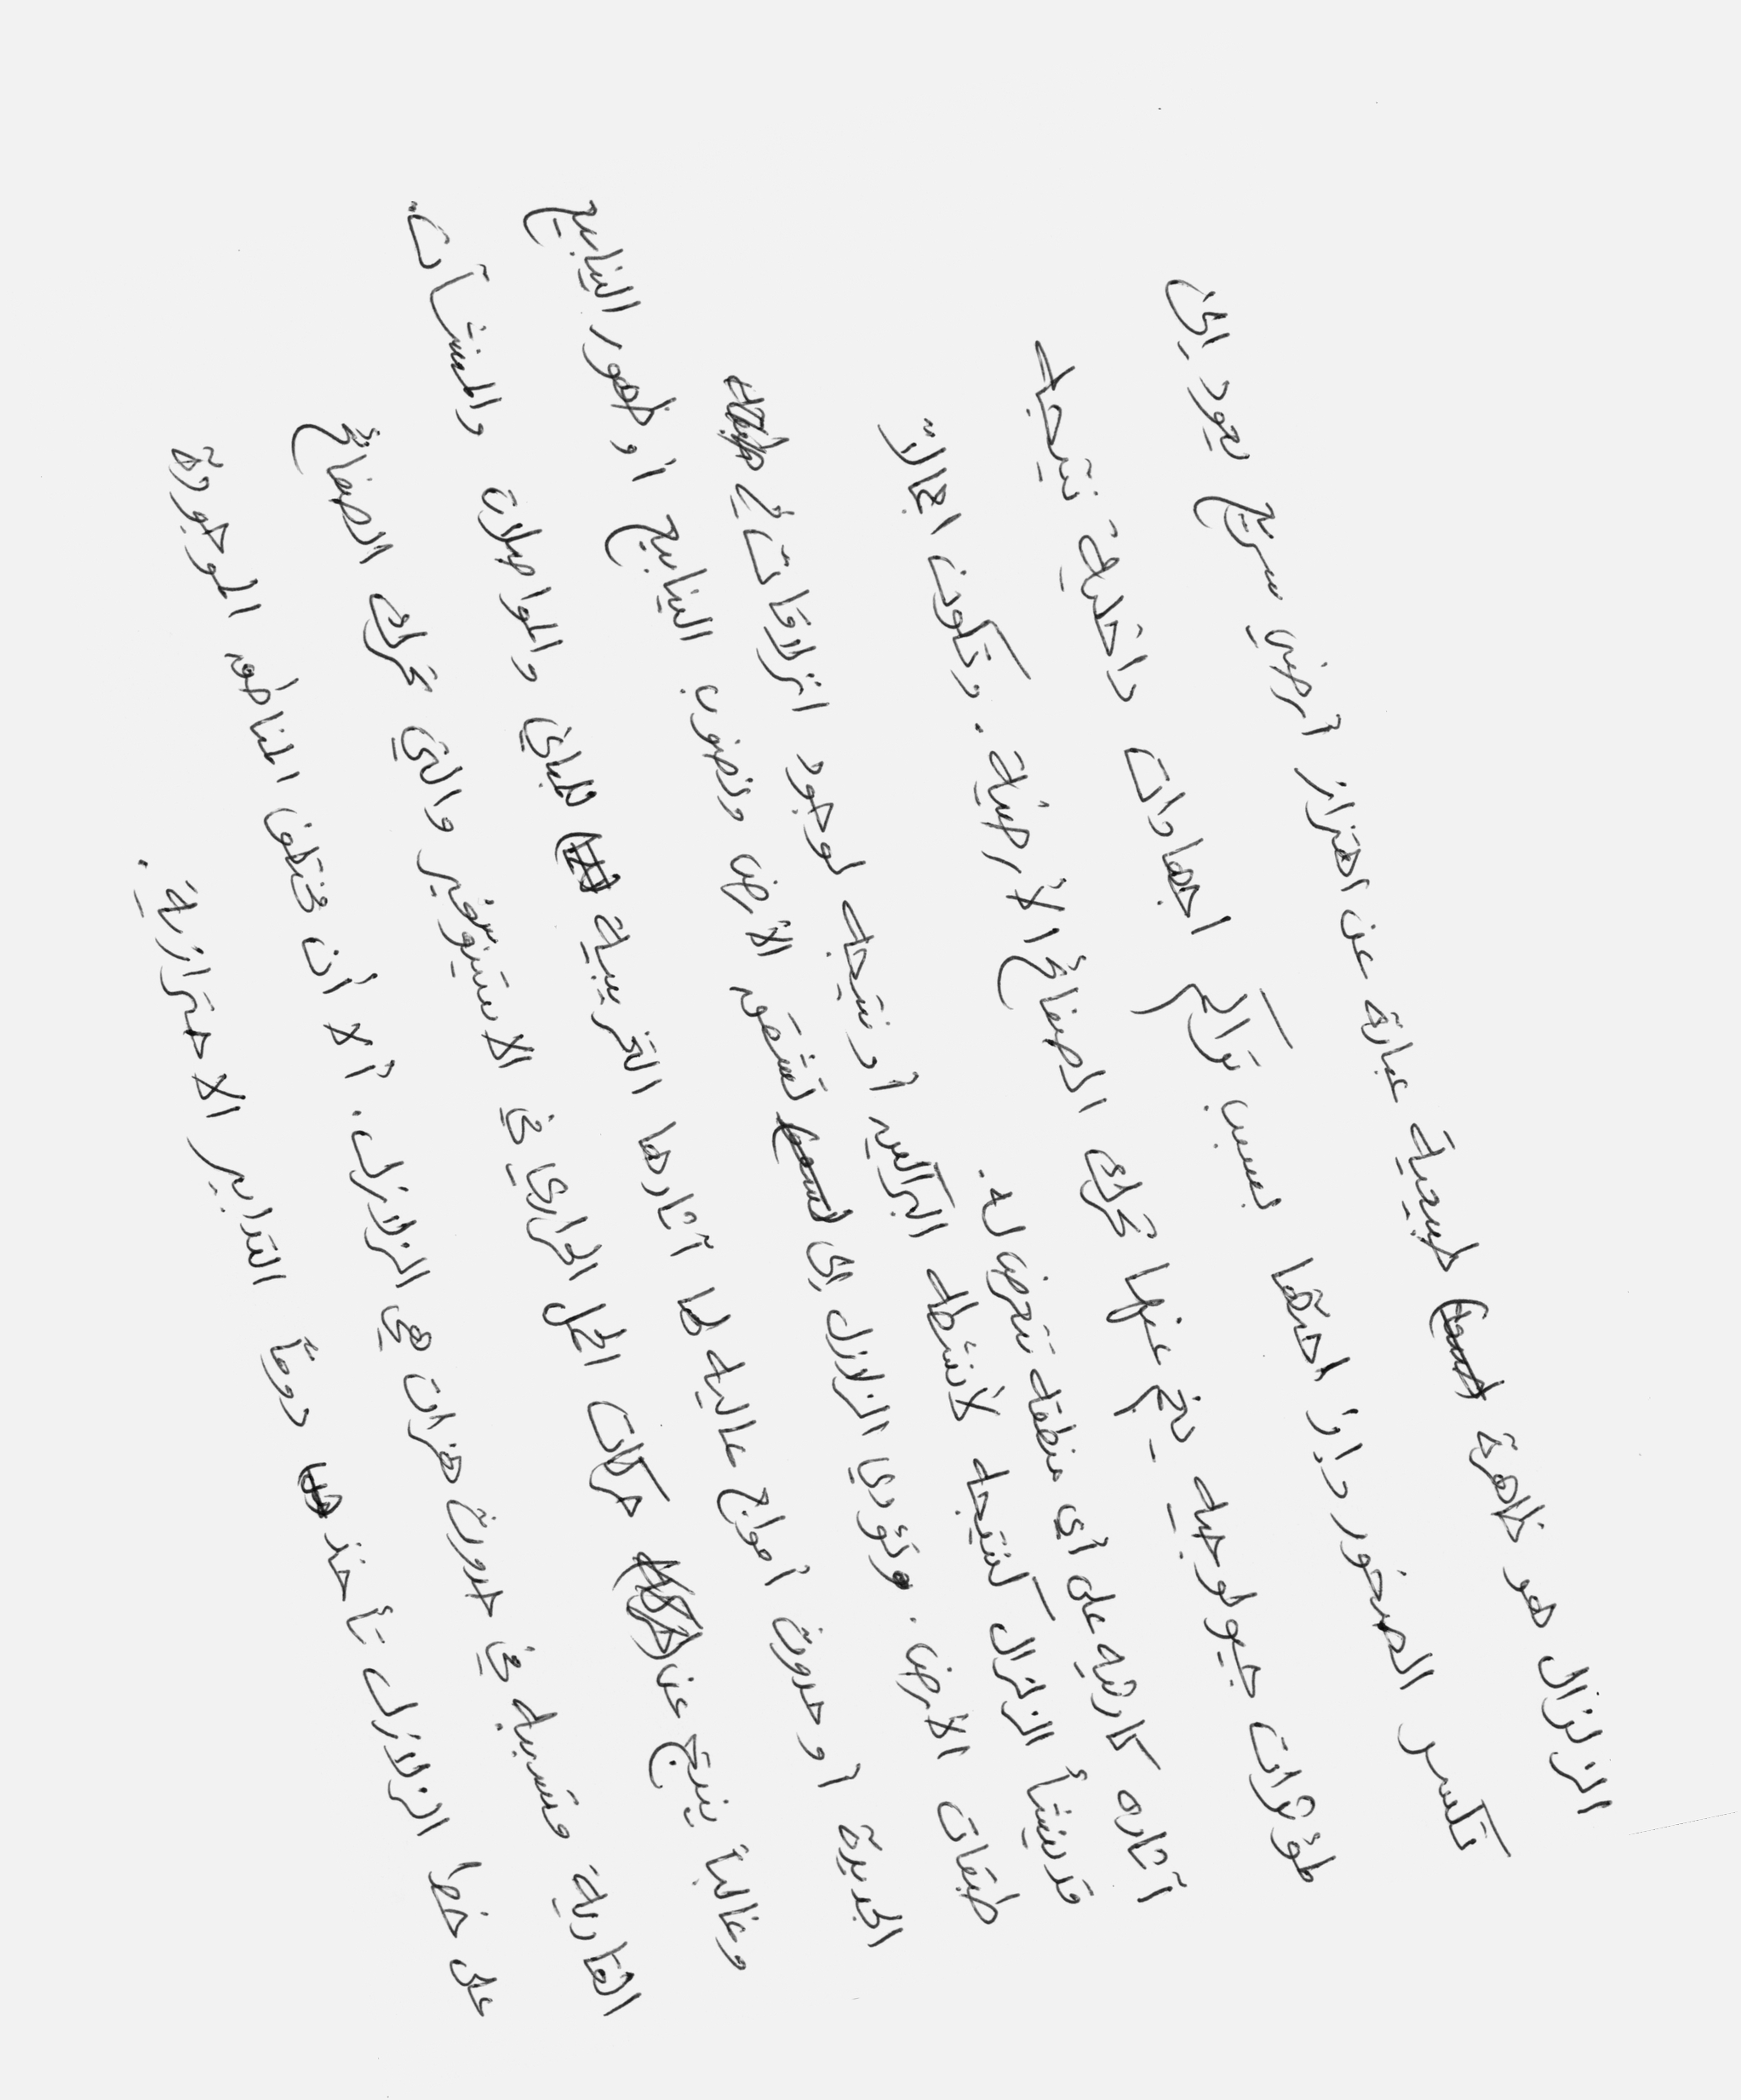 الزلزال هو ظاهرة طبيعية عبارة عن اهتزاز أرضي سريع يعود إلى
تكسر الصخور وإزاحتها بسبب تراكم اجهادات داخلية نتيجه
لمؤثرات جيولوجيه ينجم عنها تحرك الصفائح الأرضية. وتكون اجمالاً
آثاره كارثيه على أي منطقه تتعرض له.
قد ينشأ الزلزال كنتيجه لأنشطه البراكين أو نتيجه لوجود انزلاقات في
طبقات الأرض. وتؤدي الزلازل إلى تشقق الأرض ونضوب الينابيع أو ظهور الينابيع
الجديدة أو حدوث أمواج عاليه لها آثارها التخريبية للمباني والمواصلات والمنشآت.
وغالباً ينتج عن حركات الحمل الحراري في الاستينوسفير والتي تحرك الصفائح
القارية متسببه في حدوث هزات هي الزلازل. ألا أن مختلف المناطق الموجودة
على خط الزلازل تأخذ دومًا التدابير الاحترازية.